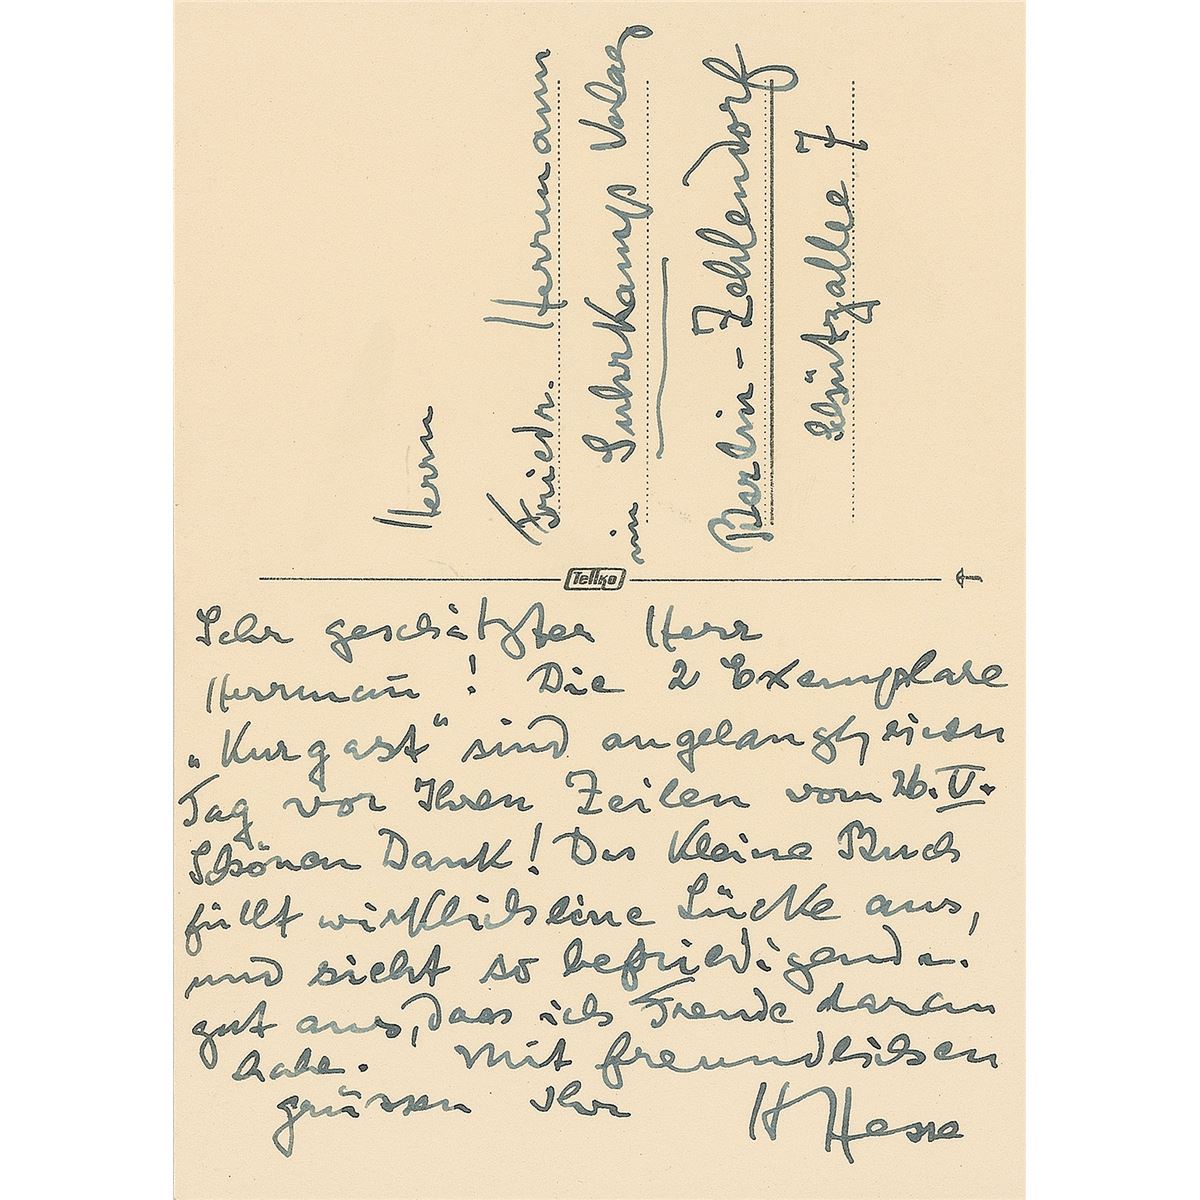 Herrn
Friedr. Herrmann
im Suhrkamp Verlag
Berlin-Zehlendorf
Schützallee 7
Tellko
Sehr geschätzter Herr
Herrmann! Die 2 Exemplare
„Kurgast" sind angelangt, einen
Tag vor Ihren Zeilen vom 26. V.
Schönen Dank! Das kleine Buch
füllt wirklich eine Lücke aus,
und sieht so befriedigend u.
gut aus, dass ich Freude daran
habe. Mit freundlichen
grüssen Ihr H Hesse